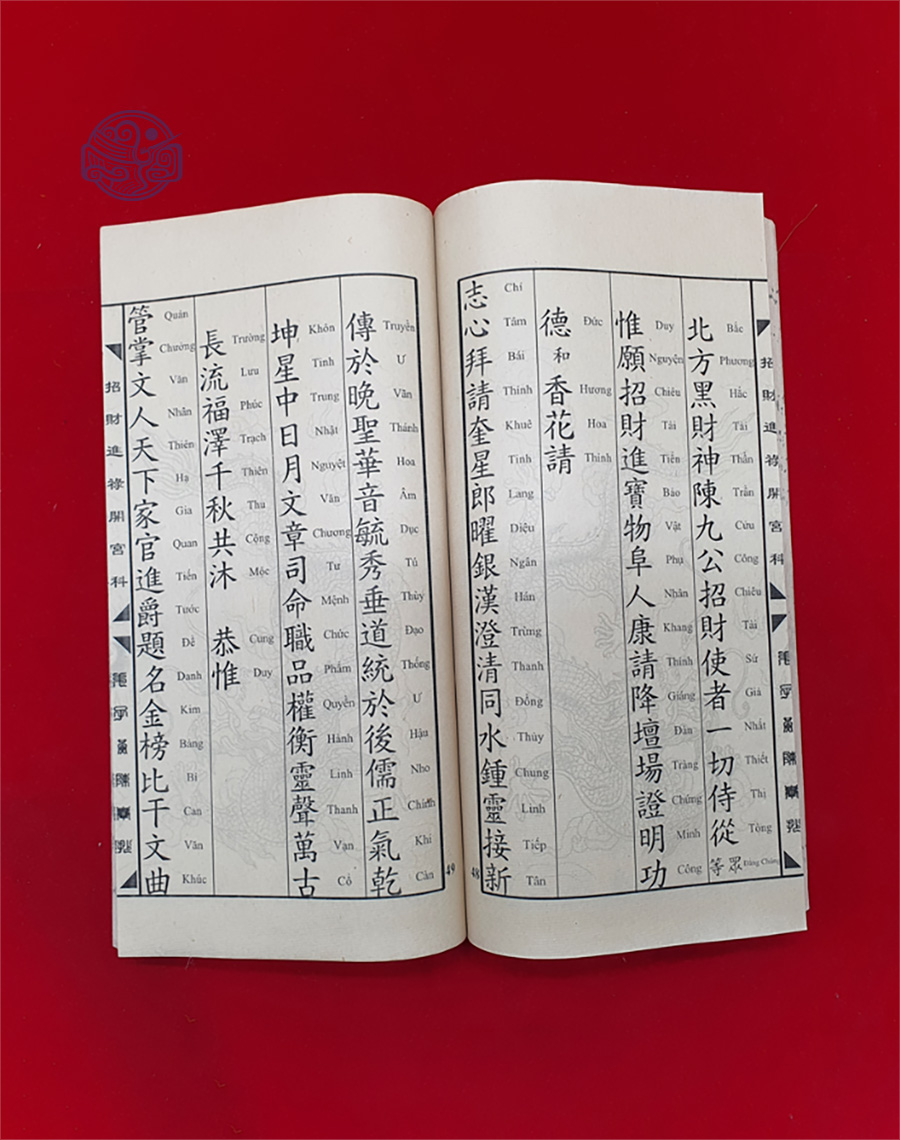 招財進祿開宮科
北方黑財神陳九公招財使者一切侍從等眾
Bắc Phương Hắc Tài Thần Trần Cửu Công Chiêu Tài Sứ Giả Nhất Thiết Thị Tòng Đẳng Chúng
惟願招財進寶物阜人康請降壇場證明功
Duy Nguyện Chiêu Tài Tiến Bảo Vật Phụ Nhân Khang Thỉnh Giáng Đàn Tràng Chứng Minh Công
德和香花請
Đức Hương Hoa Thỉnh
志心拜請奎星郎曜銀漢澄清同水鍾靈接新
Chí Tâm Bái Thỉnh Khuê Tinh Lang Diệu Ngân Hán Trừng Thanh Đồng Thủy Chung Linh Tiếp Tân
48
49
傳於晚聖華音毓秀垂道統於後儒正氣乾
Truyền Ư Vãn Thánh Hoa Âm Dục Tú Thùy Đạo Thống Ư Hậu Nho Chính Khí Càn
坤星中日月文章司命職品權衡靈聲萬古
Khôn Tinh Trung Nhật Nguyệt Văn Chương Tư Mệnh Chức Phẩm Quyền Hành Linh Thanh Vạn Cổ
長流福澤千秋共沐 恭惟
Trường Lưu Phúc Trạch Thiên Thu Cộng Mộc Cung Duy
管掌文人天下家官進爵題名金榜比干文曲
Quản Chưởng Văn Nhân Thiên Hạ Gia Quan Tiến Tước Đề Danh Kim Bảng Bỉ Can Văn Khúc
招財進祿開宮科